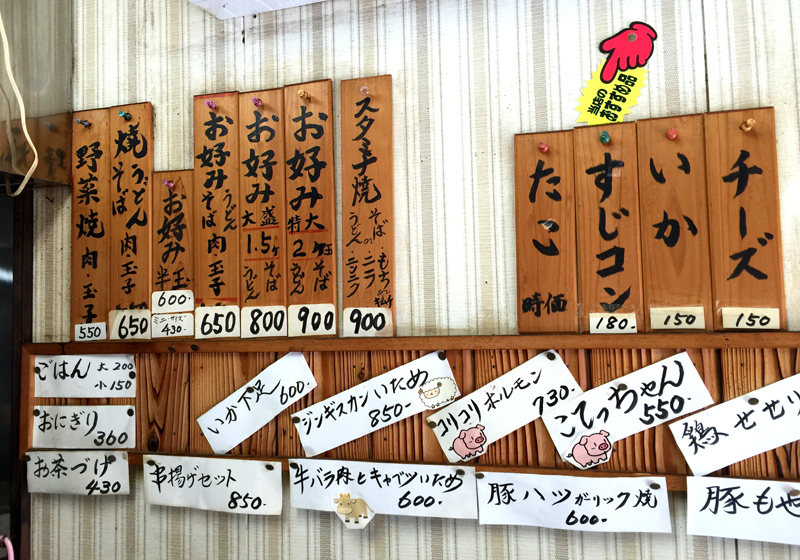 野菜焼 肉・玉子 550
焼うどん そば 肉・玉子 650
お好み 半玉 600.
ミニ・サイズ 430.
お好み うどん そば 肉・玉子 650
お好み 大盛 1.5ヶ そば うどん 800
お好み 特大 2ヶ玉 そば うどん 900
スタミナ焼 そば うどん ニラ ニンニク もち 900
当店の
おすすめ品
たこ 時価
すじコン 180.
いか 150
チーズ 150
ごはん 大 200
小 150
おにぎり 360
お茶づけ 430
いか下足 600.
ジンギスカンいため 850-
コリコリホルモン 730.
こてっちゃん 550.
鶏せせり
串揚げセット 850.
牛バラ肉とキャベツいため 600.
豚ハツガーリック焼 600-
豚もや